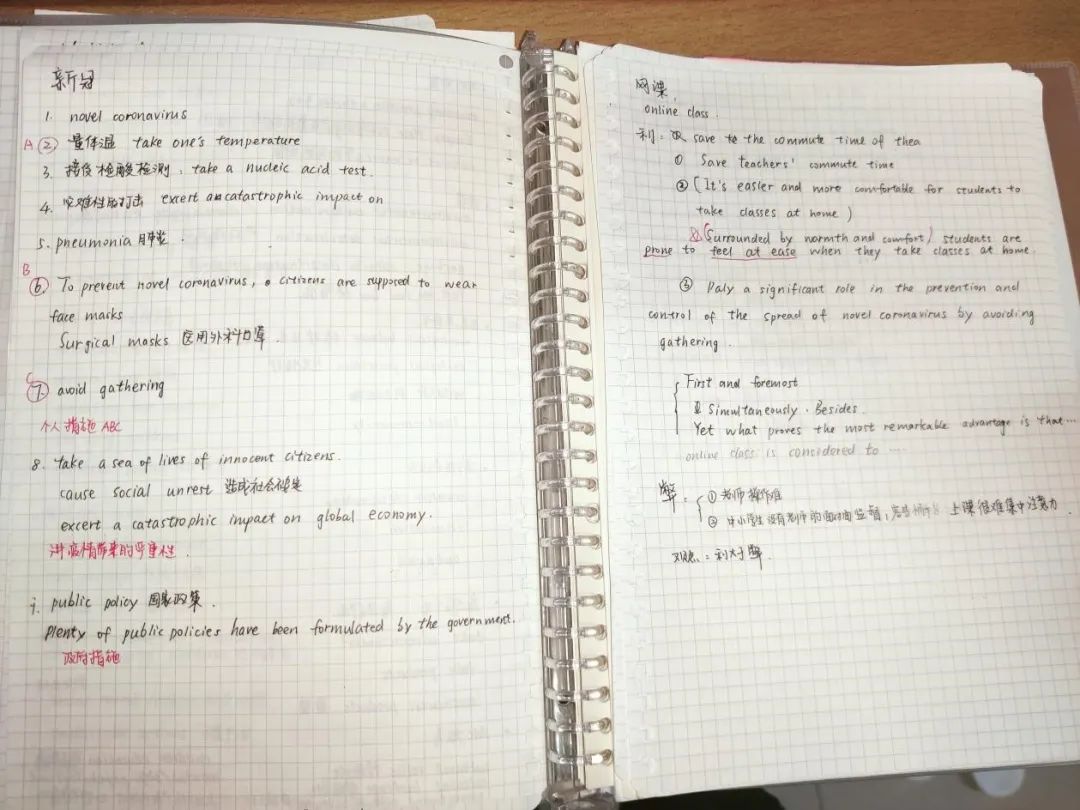 新冠
1. novel coronavirus
A ② 量体温 take one's temperature
3. 接受核酸检测: take a nucleic acid test.
4. 灾难性的打击 excert a catastrophic impact on
5. pneumonia 肺炎.
B
⑥ To prevent novel coronavirus, citizens are supposed to wear
face masks
Surgical masks 医用外科口罩.
C
⑦ avoid gathering
个人措施 ABC
8. take a sea of lives of innocent citizens.
cause social unrest 造成社会
excert a catastrophic impact on global economy.
讲疫情带来的严重性.
9. public policy 国家政策.
Plenty of public policies have been formulated by the government.
政府措施
网课.
online class.
利: save to the commute time of thea
① Save teachers' commute time
② (It's easier and more comfortable for students to
take classes at home)
(Surrounded by normth and comfort) students are
prone to feel at ease when they take classes at home.
③ Paly a significant role in the prevention and
control of the spread of novel coronavirus by avoiding
gathering.
First and foremost
Simultaneously. Besides.
Yet what proves the most remarkable advantage is that...
online class is considered to ....
弊: ① 老师操作难
② 中小学生没有老师的面对面监督, 上课很难集中注意力.
观点: 利大于弊.